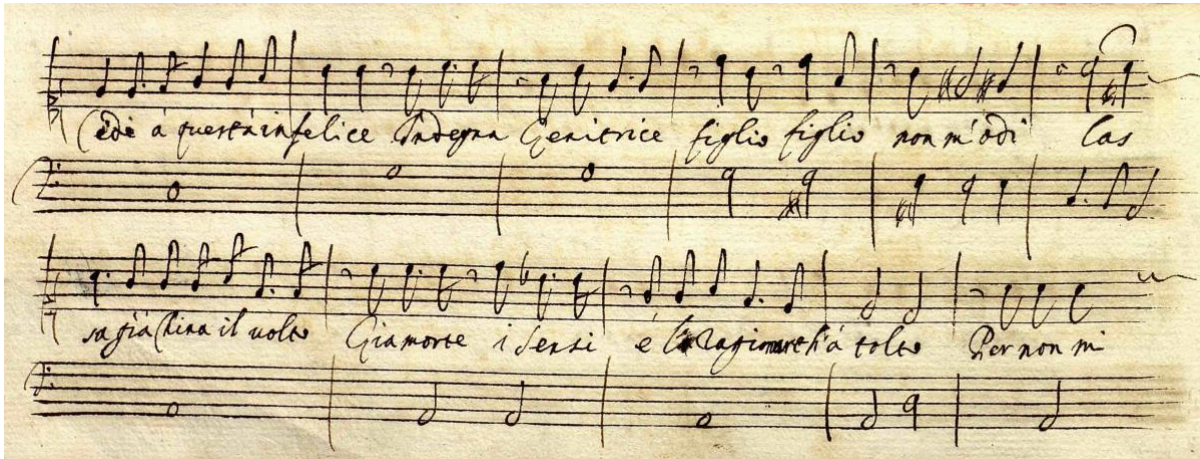 Cede à questa infelice Indegna Genitrice figlio figlio non m'odi Las
sa già china il volto Gia morte i sensi é la ragion th'à tolto Per non mi